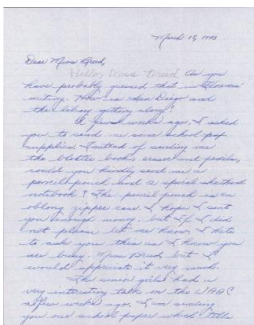 March 18, 1943
Dear Miss Breed,
Hello Miss Breed As you
have probably guessed that is Florence
writing. How is
and
the baby getting along?
A few weeks ago, I asked
you to send me some school pap
supplies. Instead of sending me
the blotter book, eraser and pencils,
could you kindly send me a
pencil and a spiral shorthand
notebook? The pencil pencil is an
oblong zipper case. I hope I sent
you enough money but if I did
not please let me know. I hate
to ask you this as I know you
are busy Miss Breed but I
would appreciate it very much.
The senior girls had a
very interesting talk on the WAAC
a few weeks ago. I am sending
you our school paper which tells